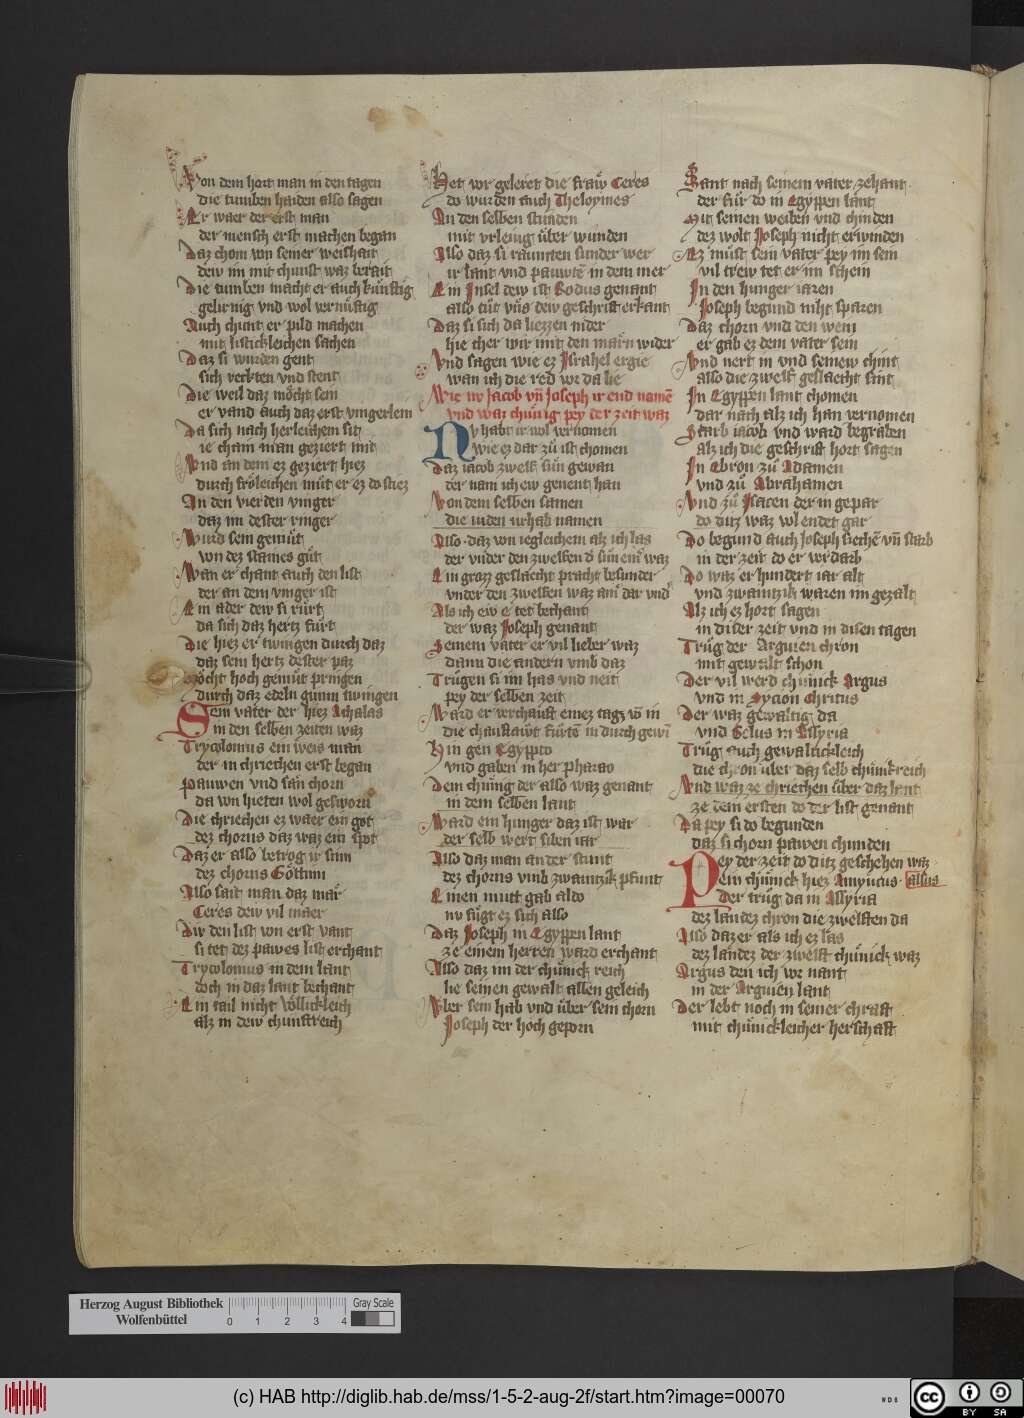 Von dem hort man in den tagen
die tumben haiden also sagen
Er waer der erst man
der mensch erst machen began
Daz chom von seiner weishait
dew im mit chunst waz berait
Die tumben macht er auch kunstig
gelirnig vnd wol vernüftig
Auch chunt er pild machen
mit listickleichen sachen
Daz si wurden gent
sich rechten vnd stent
Die weil daz möcht sein
er vand auch daz erst vingerlein
Da sich nach herleichem sit
ie cham man geziert mit
Und an dem ez geziert hiez
durch fröleichen müt er ez do stiez
An den vierden vinger
daz im dester ringer
Wurd sein gemüt
von dez staines güt
Wan er chant auch den list
der an dem vinger ist
Ein ader dew si rürt
da sich daz hertz fürt
Die hiez er twingen durch daz
daz sein hertz dester paz
Möcht hoch gemüt pringen
durch daz edeln gunm twingen
Sein vater der hiez Achalas
in den selben zeiten waz
Trycolomus ein weis man
der in chriechen erst began
Pauwen vnd sän chorn
da von hieten wol gesworn
Die chriechen ez waer ein got
dez chorns daz waz ein spot
Daz er also betrog ir sinn
dez chorns Göttinn
Also sait man daz mär
Ceres dew vil maer
Dir den list von erst vant
si tet dez pawes list erchant
Trycolomus in dem lant
doch in daz lant bechant
Ein tail nicht völlickleich
alz in dew chunstreich
Het vor geleret die fraw Ceres
do wurden auch Theloymes
An den selben stunden
mit vrleiug über wunden
Also daz si raumten sunder wer
ir lant vnd pauwtē in dem mer
Ein Insel dew ist Rodus genant
also tüt vns dew geschrift erkant
Daz si sich da liezzen nider
hie cher wir mit den märn wider
Vnd sagen wie ez Israhel ergie
wan ich die red vor da lie
Wie nv Jacob vñ Joseph ir end namē
vnd waz chünig pey der zeit waz
Nv habt ir wol vernomen
wie ez dar zü ist chomen
Daz iacob zwelf sün gewan
der nam ich ew genent han
Von dem selben samen
die iuden urhab namen
Also daz von iegleichem alz ich las
der vnder den zwelfen d sün einˀ waz
Ein groz geslaecht pracht besunder
vnder den zwelfen waz ainˀ dar vndˀ
Als ich ew e tet bechant
der waz Joseph genant
Seinem vater er vil lieber waz
dann die andern vmb daz
Trügen si im has vnd neit
pey der selben zeit
Ward er verchauft einez tagz vō in
die chauflawt fürtē in durch gewī
Hin gen Egypto
vnd gaben in her pharao
Dem chünig der also waz genant
in dem selben lant
Ward ein hunger daz ist war
der selb wert siben iar
Also daz man an der stunt
dez chorns vmb zwaintzik pfunt
Einen mutt gab aldo
nv fügt ez sich also
Daz Joseph in Egyppen lant
ze einem herren ward erchant
Also daz im der chünick reich
lie seinen gewalt allen geleich
Vber sein hab vnd über sein chorn
Joseph der hoch geporn
Sant nach seinem vater zehant
der für do in Egyppen lant
Mit seinen weiben vnd chinden
dez wolt Joseph nicht erwinden
Ez müst sein vater pey im sein
vil trew tet er im schein
In den hunger iaren
Joseph begund niht sparen
Daz chorn vnd den wein
er gab ez dem vater sein
Vnd nert in vnd seinew chint
also die zwelf geslaecht sint
In Egyppen lant chomen
dar nach alz ich han vernomen
Starb iacob vnd ward begraben
alz ich die geschrift hort sagen
In Ebron zü Adamen
vnd zü Abrahamen
Vnd zü Isacen der in gepar
do ditz waz vol endet gar
Do begund auch Joseph siechē vñ starb
in der zeit do er verdarb
Do waz er hundert iar alt
vnd zwaintzik waren im gezalt
Alz ich ez hort sagen
in diser zeit vnd in disen tagen
Trüg der Arguien chron
mit gewalt schon
Der vil werd chünick Argus
vnd in Sycion Chritus
Der waz gewaltig da
vnd Belus in Assyria
Trüg auch gewaltickleich
die chron über daz selb chünikreich
Vnd waz ze chriechen über daz lant
ze dem ersten do der list genant
Da pey si do begunden
daz si chorn pawen chunden
Pey der zeit do ditz geschehen waz
Ein chünick hiez Amyntus allus
Der trüg da in Assyria
dez landez chron die zwelften da
Also daz er als ich ez las
dez landez der zwelft chünick waz
Argus den ich vor nant
in der Arguien lant
Der lebt noch in seiner chraft
mit chünickleicher herschaft
Herzog August Bibliothek
Wolfenbüttel
0 1 2 3 4
Gray Scale
(c) HAB http://diglib.hab.de/mss/1-5-2-aug-2f/start.htm?image=00070
WD6
cc BY SA